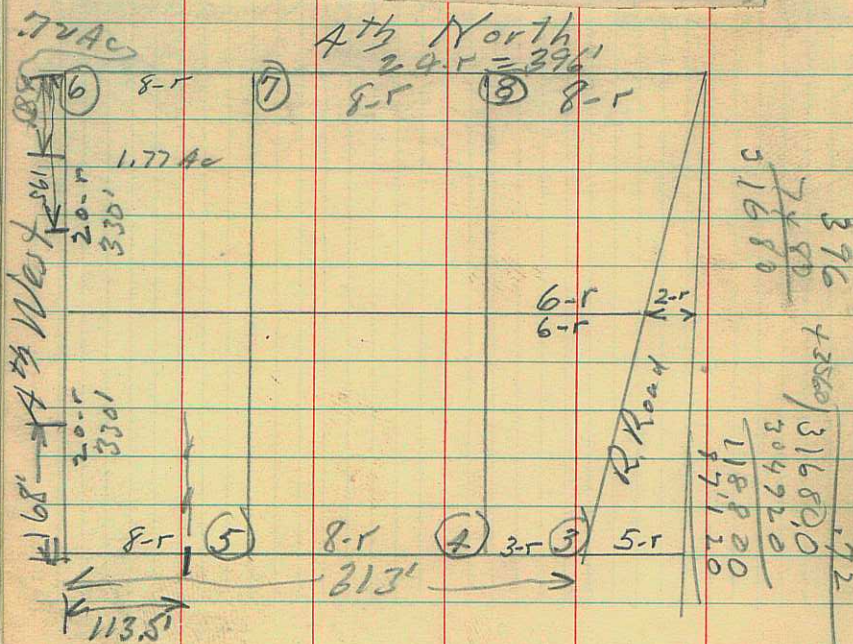 .72 Ac
4th North
24-r = 396'
6 8-r 7 8-r 8 8-r
1.77 Ac
20-r
330'
4th West
6-r 2-r
6-r
R. Road
20-r
330'
168'
8-r 5 8-r 4 3-r 3 5-r
313'
113.5'
396
80
31680
.72
43560)31680.0
304920
118800
87120